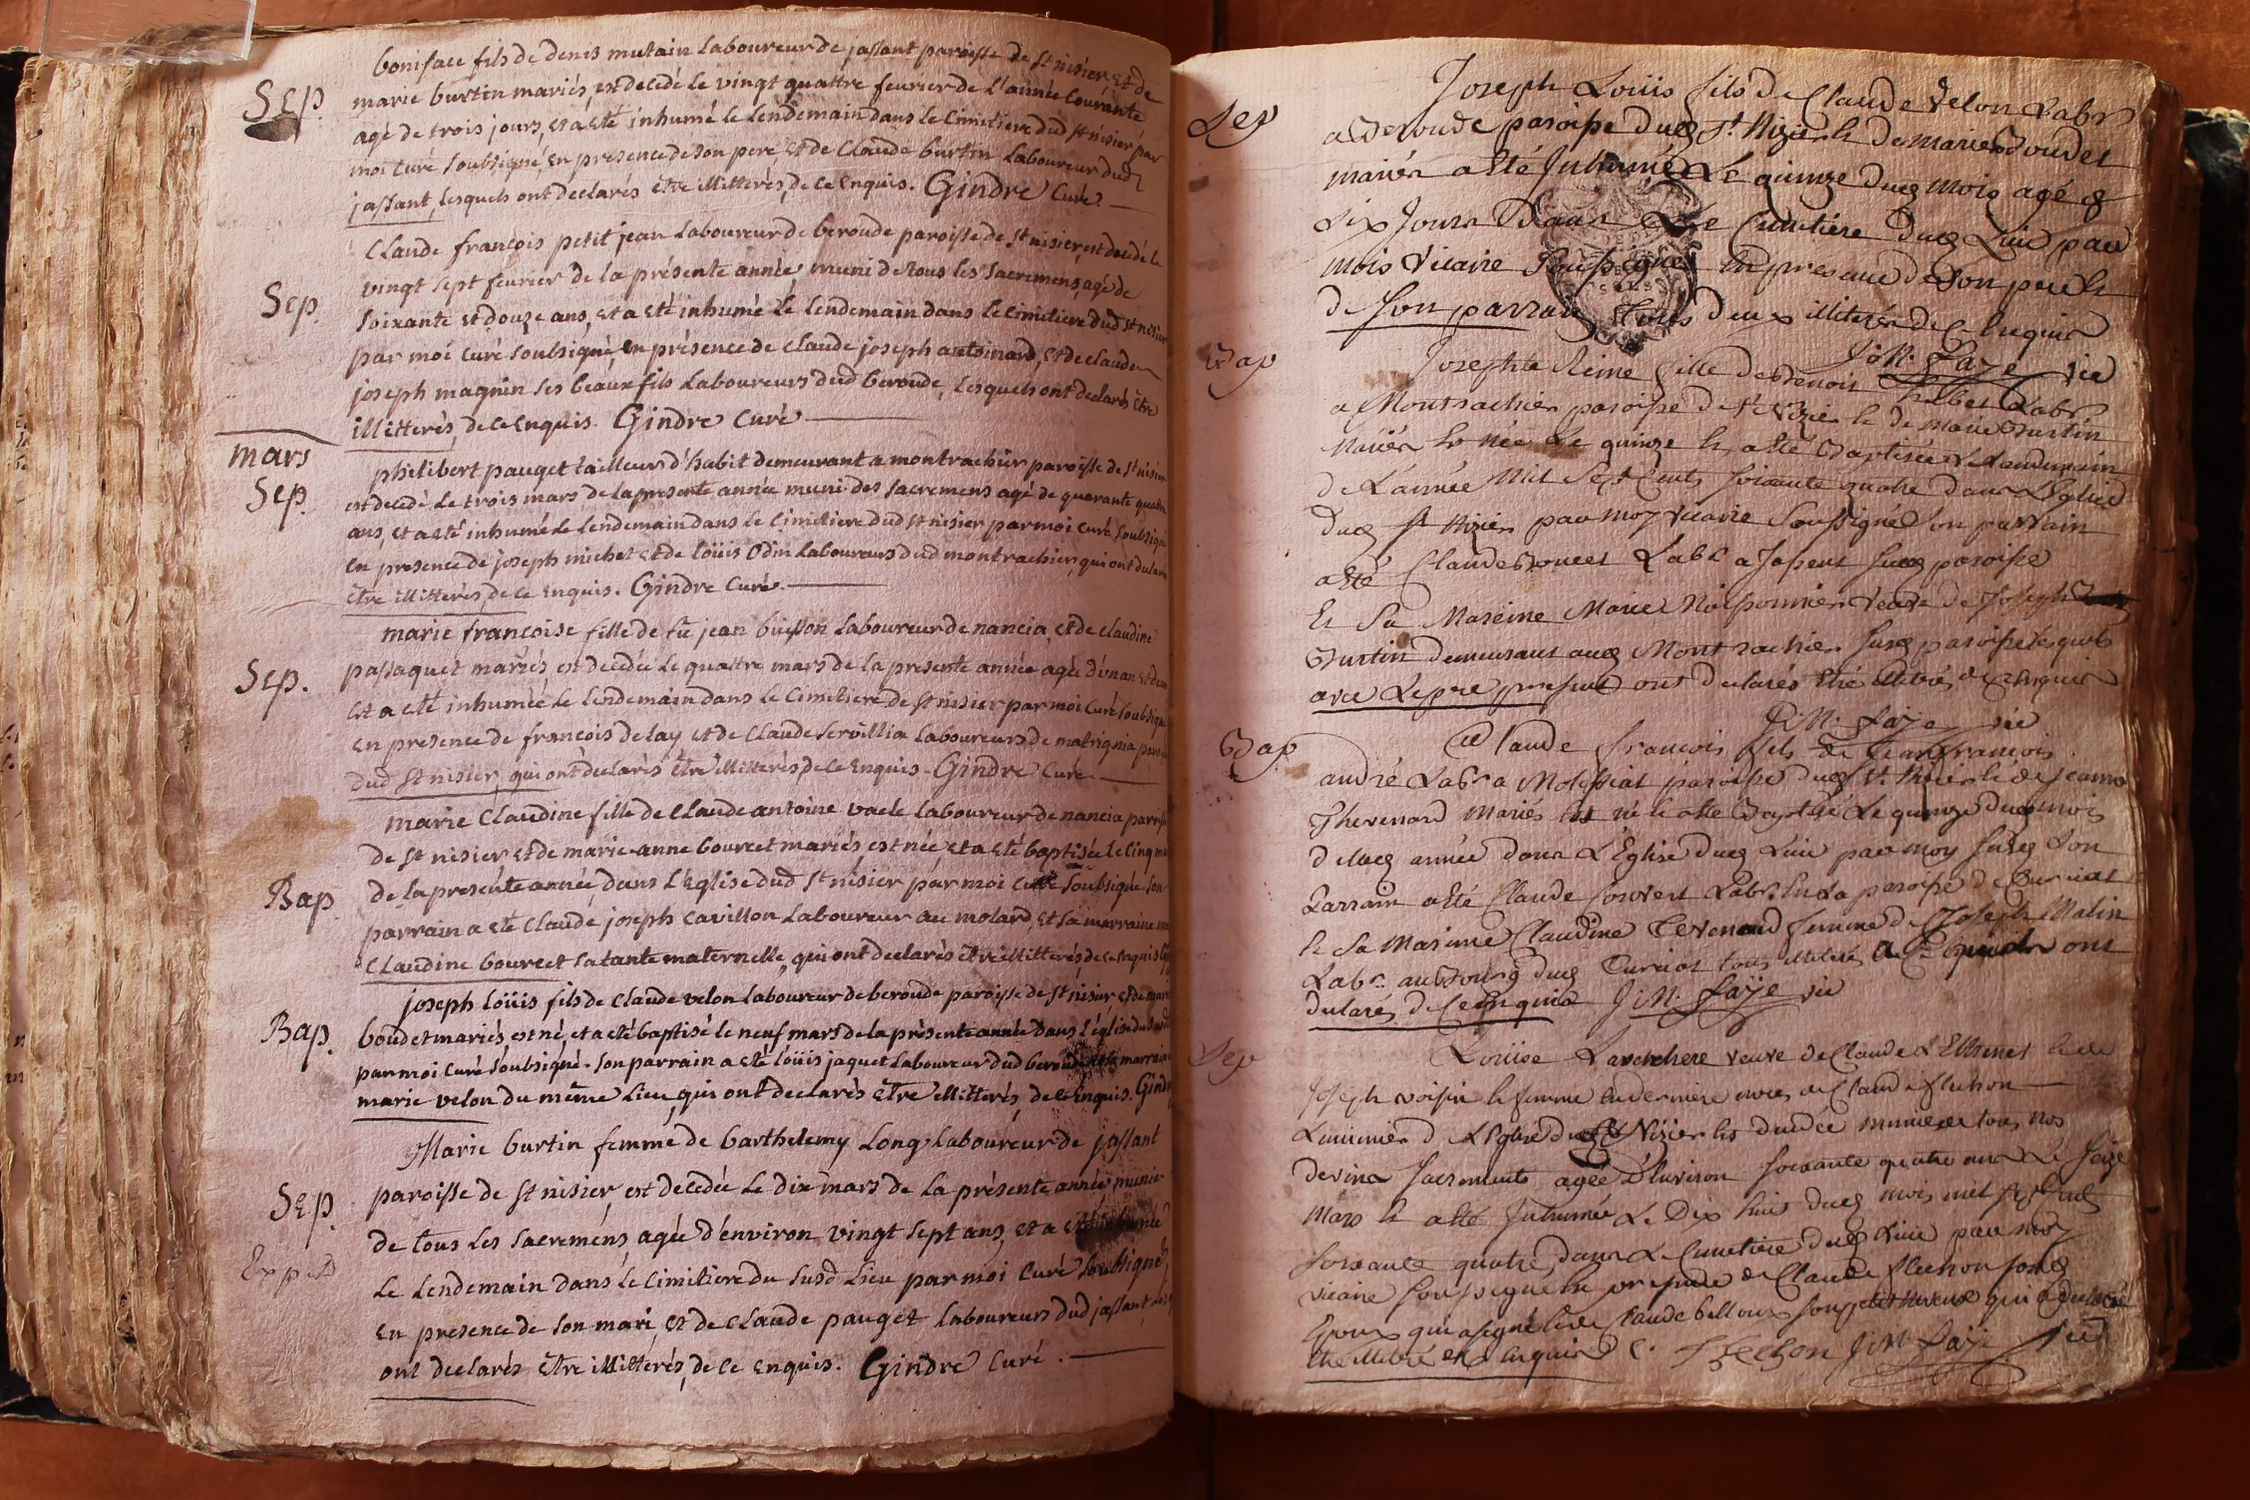 boniface fils de denis mutain Laboureur de jassant paroisse de St nisier et de
Sep.
marie burtin mariés, est decedé le vingt quattre feurier de l'année Courante
agé de trois jours, et a eté inhumé le Lendemain dans le Cimitiere dud St nisier par
moi Curé soubsigné, en presence de son pere, et de Claude burtin Laboureur dud
jassant, lesquels ont declarés être illitterés, de ce enquis. Gindre Curé.
Claude françois petit jean Laboureur de beroude paroisse de St nisier est decedé le
vingt sept feurier de la présente année muni de tous les Sacremens, agé de
Sep.
soixante et douze ans, et a eté inhumé le lendemain dans le Cimitiere dud St nisier
par moi curé soubsigné, en présence de Claude joseph antoinard, et de claude
joseph magnin ses beaux fils Laboureurs dud beroude, Lesquels ont declarés être
illitterés, de ce enquis. Gindre Curé
mars
philibert pauget tailleur d'habit demeurant a montrachier paroisse de St nisier
Sep.
est decedé le trois mars de la presente année muni des sacremens agé de quarante quatre
ans, et a eté inhumé le lendemain dans le Cimitiere dud St nisier par moi curé soubsigné
en presence de joseph michet et de loüis Odin Laboureurs dud montrachier, qui ont declarés
être illitterés, de ce enquis. Gindre Curé.
marie françoise fille de fû jean buisson Laboureur de nancia, et de claudine
Sep.
passaquet mariés, est decedée le quattre mars de la presente année agée d'un an et demi
et a eté inhumée le lendemain dans le Cimitiere de St nisier par moi Curé soubsigné
en presence de françois delay et de Claude Servillia Laboureurs de matignia paroisse
dud St nisier, qui ont declarés être illitterés, de ce enquis. Gindre Curé
marie Claudine fille de Claude antoine vacle Laboureur de nancia paroisse
de St nisier et de marie anne bourcet mariés, est née, et a eté baptisée le cinq mars
Bap
de la presente année, dans L'Eglise dud St nisier par moi Curé soubsigné. son
parrain a eté Claude joseph cavillon Laboureur au molard, et sa marraine
Claudine bourcet sa tante maternelle, qui ont declarés être illitterés, de ce enquis
joseph loüis fils de Claude velon Laboureur de beroude paroisse de St nisier et de marie
Bap.
boudet mariés, est né, et a eté baptisé le neuf mars de la présente année dans l'église dud
par moi Curé soubsigné. son parrain a eté loüis jaquet Laboureur dud beroude marraine
marie velon du même Lieu, qui ont declarés être illitterés, de ce enquis. Gindre
Marie burtin femme de barthelemy Long Laboureur de jassant
Sep.
paroisse de St nisier, est decedée Le dix mars de La présente année munie
de tous Les Sacremens, agée d'environ vingt sept ans, et a eté inhumée
Exped
Le Lendemain dans le Cimitiere du susd Lieu par moi Curé Soubsigné
en presence de son mari, et de Claude pauget Laboureurs dud jassant,
ont declarés être illitterés, de ce enquis. Gindre Curé.
Joseph Loüis fils de Claude Velon Labr
Sep
a Beroude paroisse dud St Nizier & de marie Boudet
mariés a eté Inhumé Le quinze dud mois agé de
Six Jours Dans Le Cimetiere dud Lieu par
mois Vicaire Soussigné En presence de Son pere &
de Son parrain Tous deux illiterés de Ce Enquis
J:N. Faye vic
Bap
Josephte Reine fille de Benoit Philbert Labr
a Montrachier paroisse de St Nizier & de marie Burtin
Mariés Est née Le quinze & a eté Baptisée Le Lendemain
de L'année Mil Sept Cents Soixante quatre dans L'Eglise
dud St Nizier par moy vicaire Soussigné Son parrain
a eté Claude Boucet Labr a Jasseut Sud paroisse
& Sa Mareine Marie Moissonnier veuve de Joseph
Burtin demeurant aud Montrachier Susd paroisse Lesquels
avec Le pere present ont declarés Etre illiterés de Ce Enquis
J:N. Faye vic
Bap
Claude francois fils de Jean francois
andré Labr a Molissiat paroisse dud St Nizier & de Jeanne
Thevenard Mariés Est né & a eté Baptisé Le quinze dud mois
de lad année dans L'Eglise dud Lieu par moy Susd Son
Parrain a eté Claude Convert Labr En La paroisse de Curciat
& Sa Mareine Claudine Tevenard femme de Joseph Matin
Labr au Bourg dud Curciat tous illiterés ont
declarés de Ce Enquis J:N. Faye vic
Sep
Loüise Larchere veuve de Claude & de
Joseph voisin & femme En derniere noces de Claude flechon
Luminier de L'Eglise dud St Nizier Est decedée munie de tous nos
devins Sacrements agée D'Environ Soixante quatre ans Le Seize
Mars & a eté Inhumée Le Dix huit dud mois mil Sept Cents
Soixante quatre, dans Le Cimetiere dud Lieu par moy
vicaire Soussigné En presence de Claude flechon Sond
Epoux qui a signé & de Claude belloux Son petit neveux qui a declaré
Etre illiteré de Ce Enquis C. Flechon J:N. Faye vic